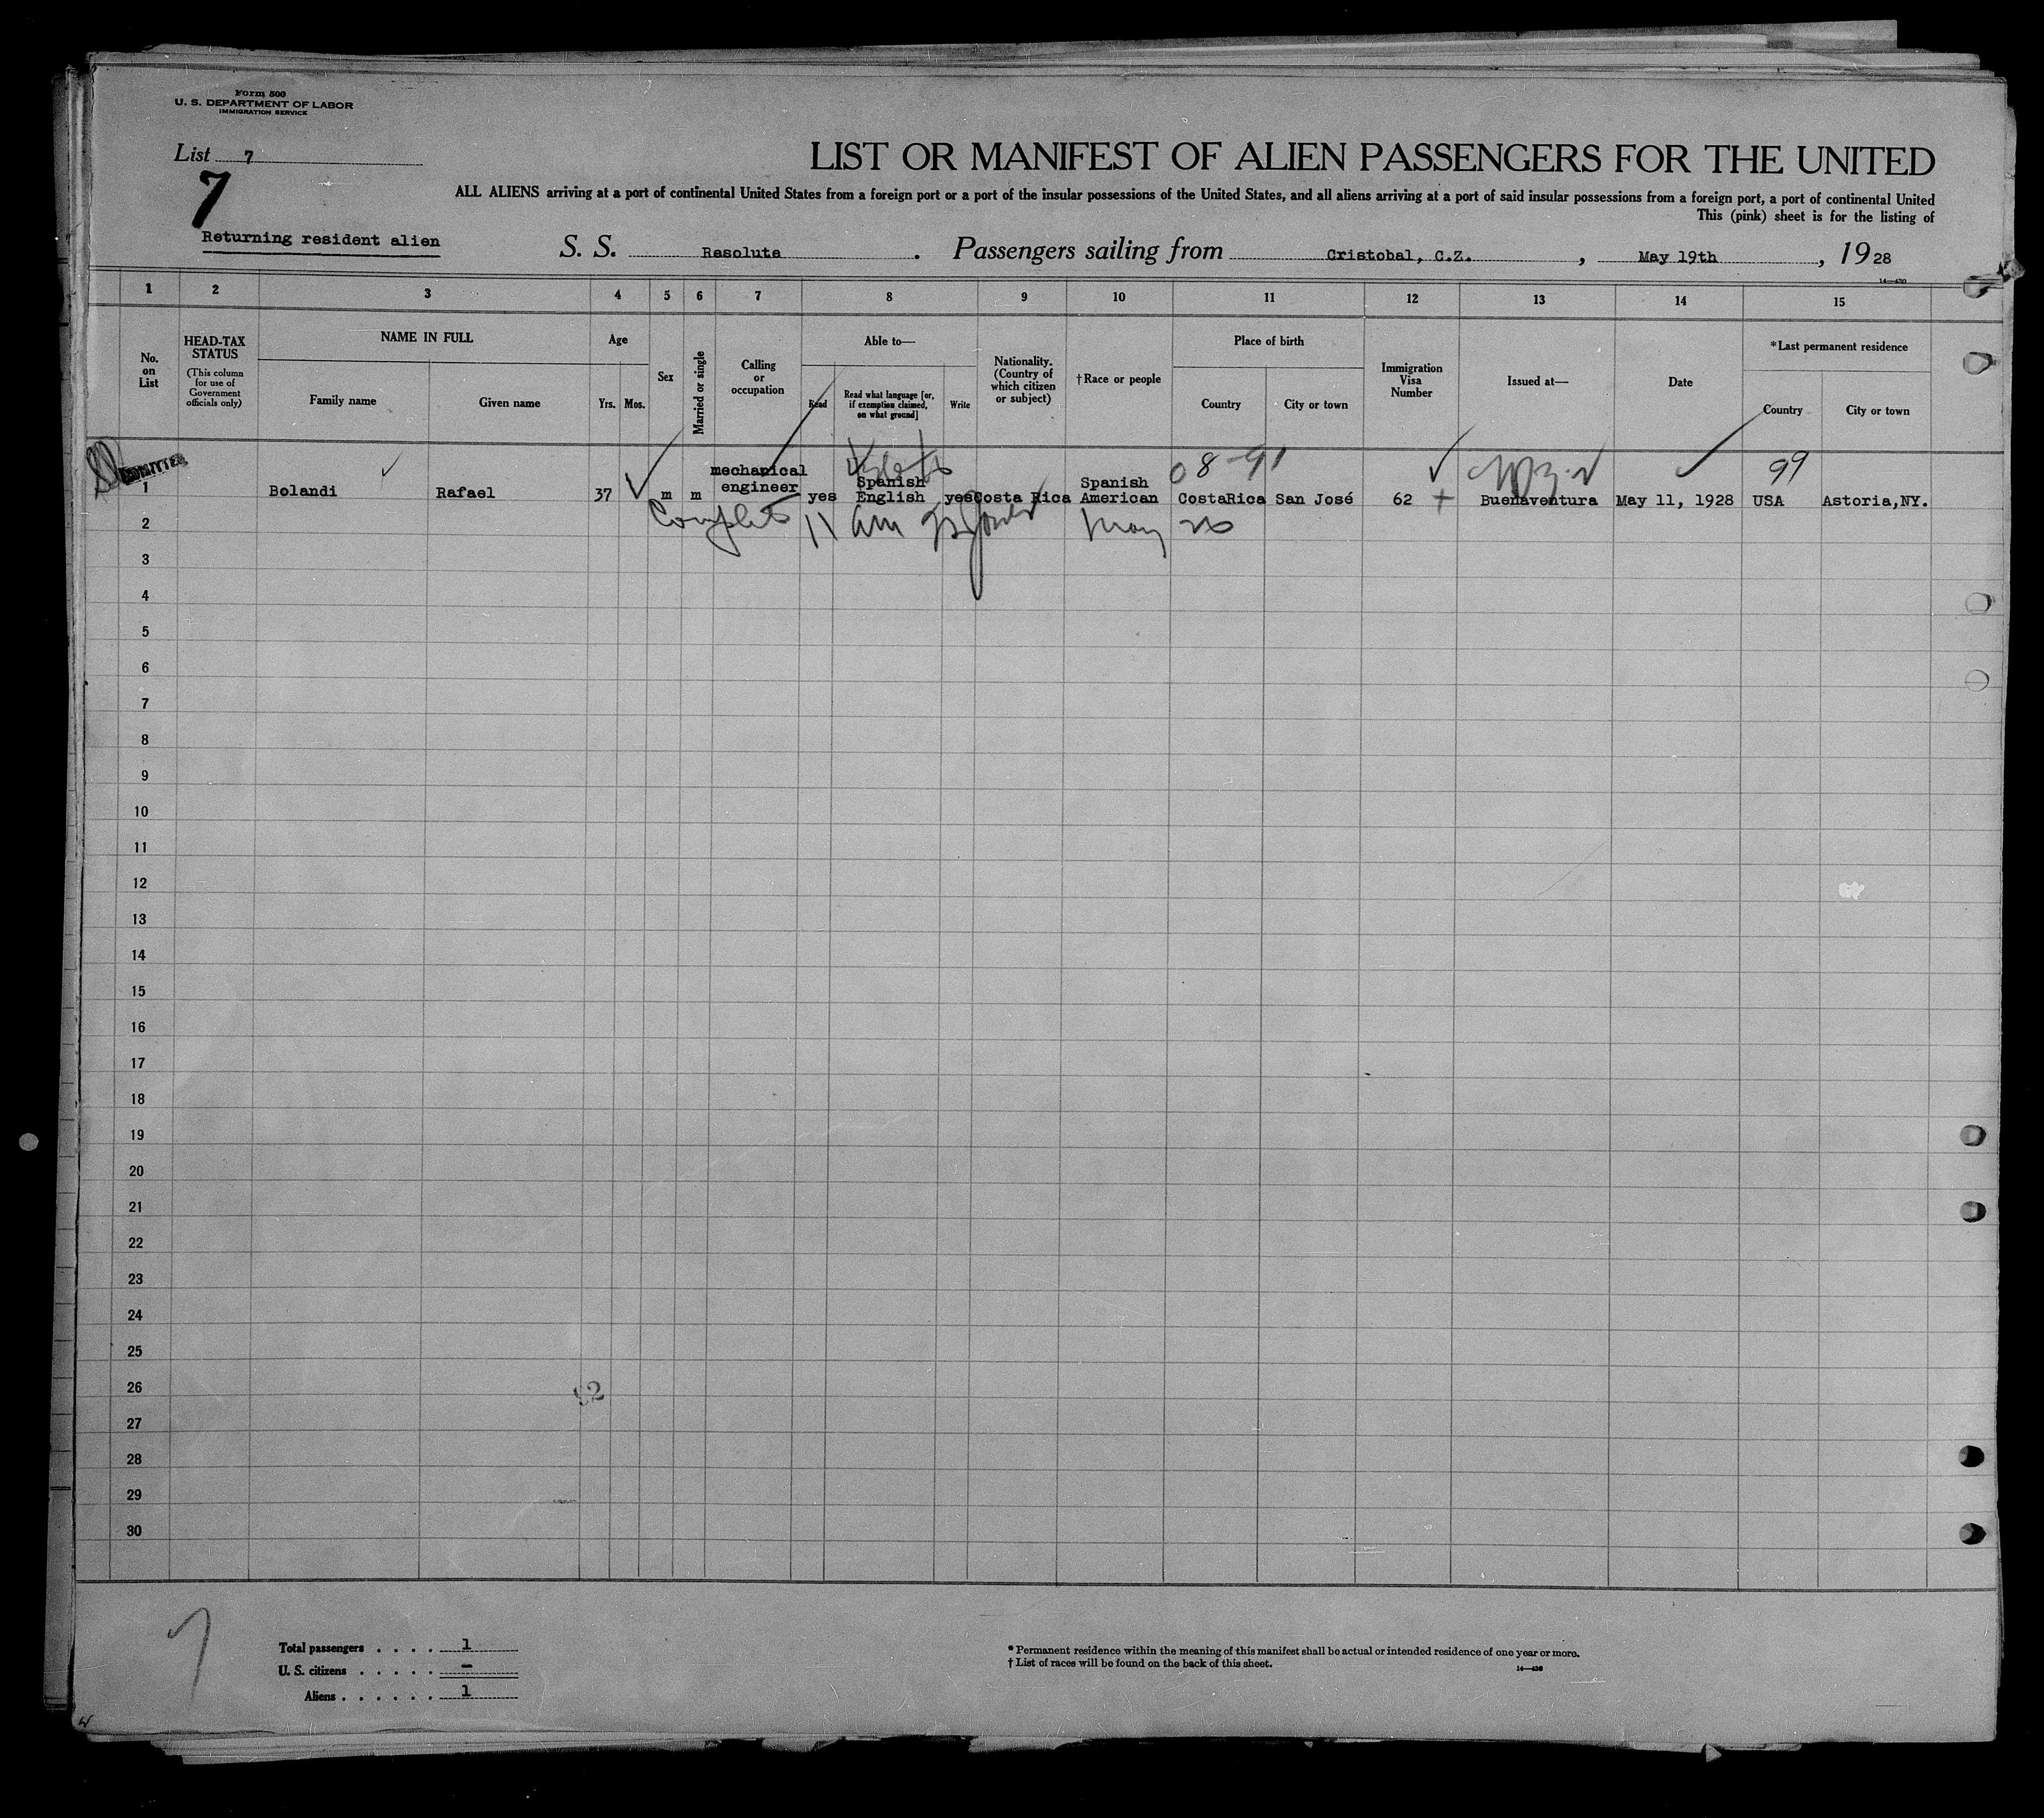 Form 500
U. S. DEPARTMENT OF LABOR
IMMIGRATION SERVICE
List 7
7
LIST OR MANIFEST OF ALIEN PASSENGERS FOR THE UNITED
ALL ALIENS arriving at a port of continental United States from a foreign port or a port of the insular possessions of the United States, and all aliens arriving at a port of said insular possessions from a foreign port, a port of continental United
This (pink) sheet is for the listing of
Returning resident alien
S. S. Resolute. Passengers sailing from Cristobal, C.Z., May 19th, 1928
14—430
1 2 3 4 5 6 7 8 9 10 11 12 13 14 15
No. on List
HEAD-TAX STATUS
(This column for use of Government officials only)
NAME IN FULL
Family name
Given name
Age
Yrs. Mos.
Sex
Married or single
Calling or occupation
Able to—
Read
Read what language [or, if exemption claimed, on what ground]
Write
Nationality. (Country of which citizen or subject)
†Race or people
Place of birth
Country
City or town
Immigration Visa Number
Issued at—
Date
*Last permanent residence
Country
City or town
ADMITTED
08-91
99
1 Bolandi Rafael 37 m m mechanical engineer yes Spanish English yes Costa Rica Spanish American CostaRica San José 62 + Buenaventura May 11, 1928 USA Astoria,NY.
2 Complete 11 am May
3
4
5
6
7
8
9
10
11
12
13
14
15
16
17
18
19
20
21
22
23
24
25
26
27
28
29
30
7
Total passengers . . . . 1
U. S. citizens . . . . . –
Aliens . . . . . . 1
* Permanent residence within the meaning of this manifest shall be actual or intended residence of one year or more.
† List of races will be found on the back of this sheet.
14—430